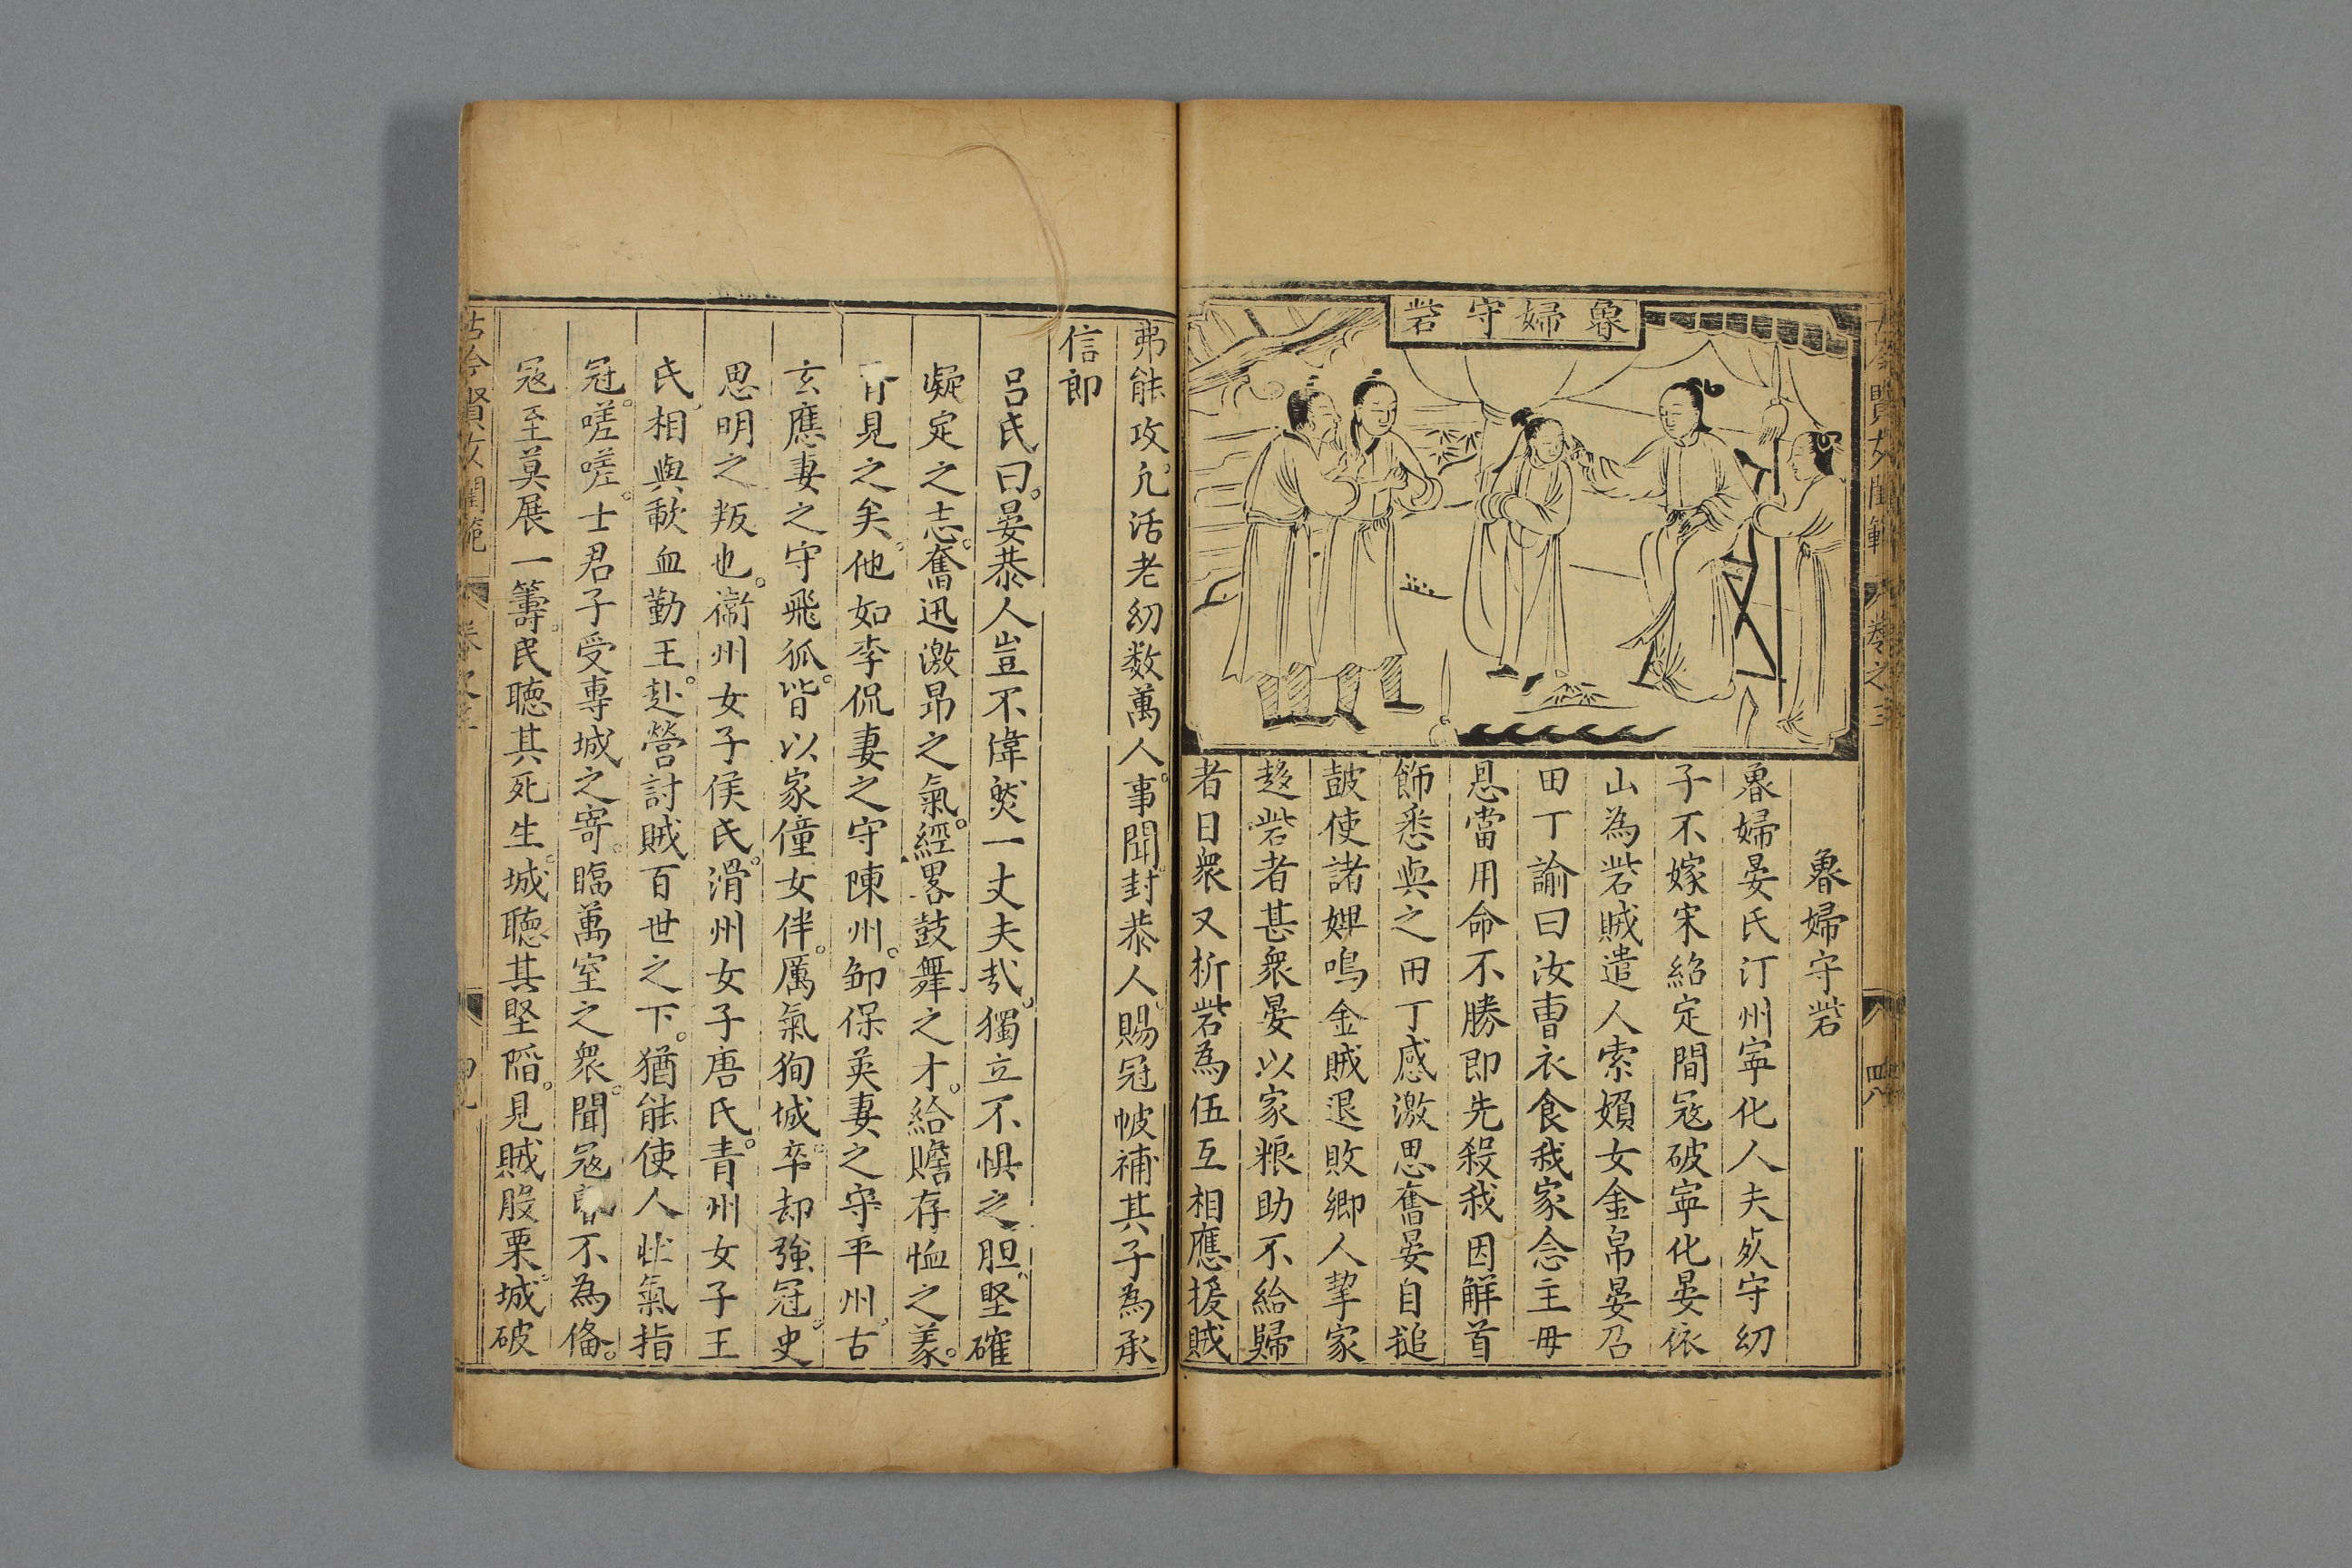 魯婦守砦
魯婦守砦
魯婦晏氏汀州寕化人夫死守幼
子不嫁宋紹定間寇破寕化晏依
山為砦賊遣人索婦女金帛晏召
田丁諭曰汝曹衣食我家念主母
恩當用命不勝即先殺我因解首
飾悉與之田丁感激思奮晏自搥
鼓使諸婢鳴金賊退敗鄉人挈家
趍砦者甚衆晏以家粮助不給歸
者日衆又析砦為伍互相應援賊
弗能攻凢活老幼数萬人事聞封恭人賜冠帔補其子為承
信郎
呂氏曰晏恭人豈不偉然一丈夫㢤獨立不惧之胆堅確
凝定之志奮迅激昂之氣經畧鼓舞之才給贍存恤之義
見之矣他如李侃妻之守陳州鄒保英妻之守平州古
玄應妻之守飛狐皆以家僮女伴厲氣狥城卒却強寇史
思明之叛也衛州女子侯氏滑州女子唐氏青州女子王
氏相與歃血勤王赴營討賊百世之下猶能使人壮氣指
冠嗟嗟士君子受專城之寄臨萬室之衆聞寇不為俻
寇至莫展一籌民聽其死生城聽其堅陷見賊股栗城破
古今賢女閨範 卷之三